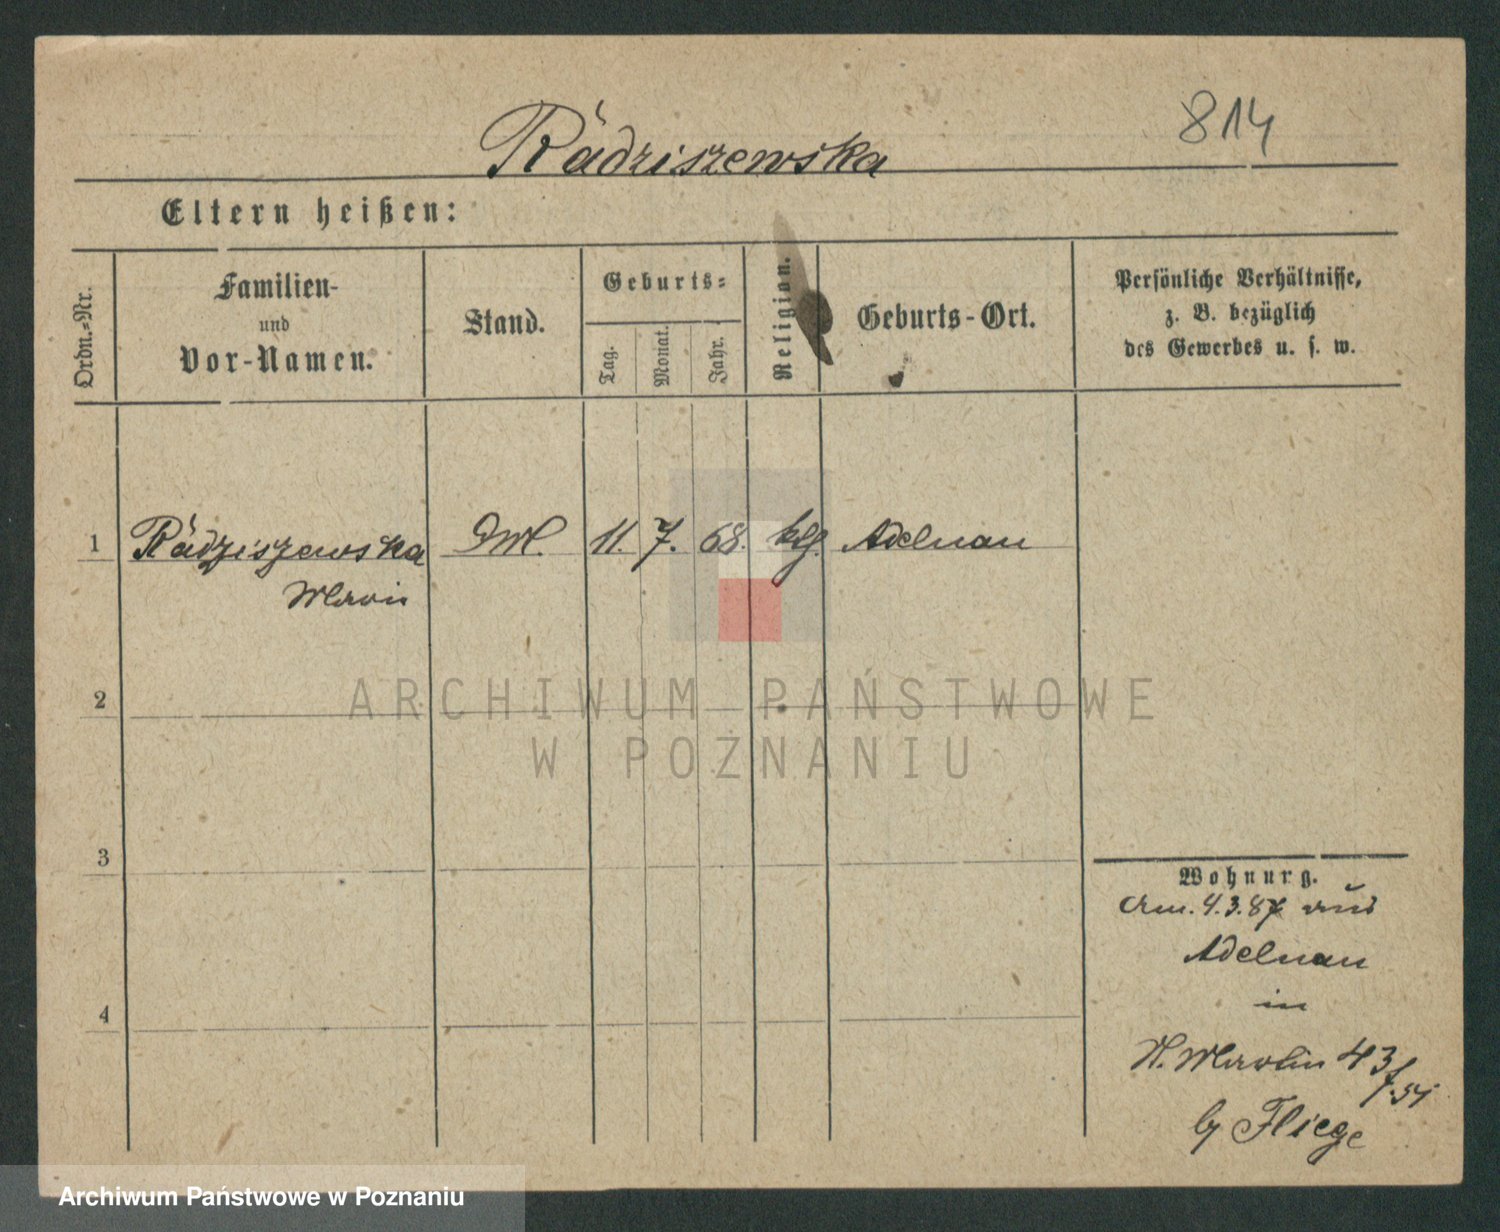 Rádziszewska
814
Eltern heißen:
Ordn.-Nr.
Familien-
und
Vor-Namen.
Stand.
Geburts-
Tag.
Monat.
Jahr.
Religion.
Geburts-Ort.
Persönliche Verhältnisse,
z. B. bezüglich
des Gewerbes u. s. w.
1 Rádziszewska 11. 7. 68. ktl. Adelnau
Marie
2
ARCHIWUM PAŃSTWOWE
W POZNANIU
3
4
Wohnung.
4.3.87 aus
Adelnau
in
St. Martin 43
by Fliege
Archiwum Państwowe w Poznaniu